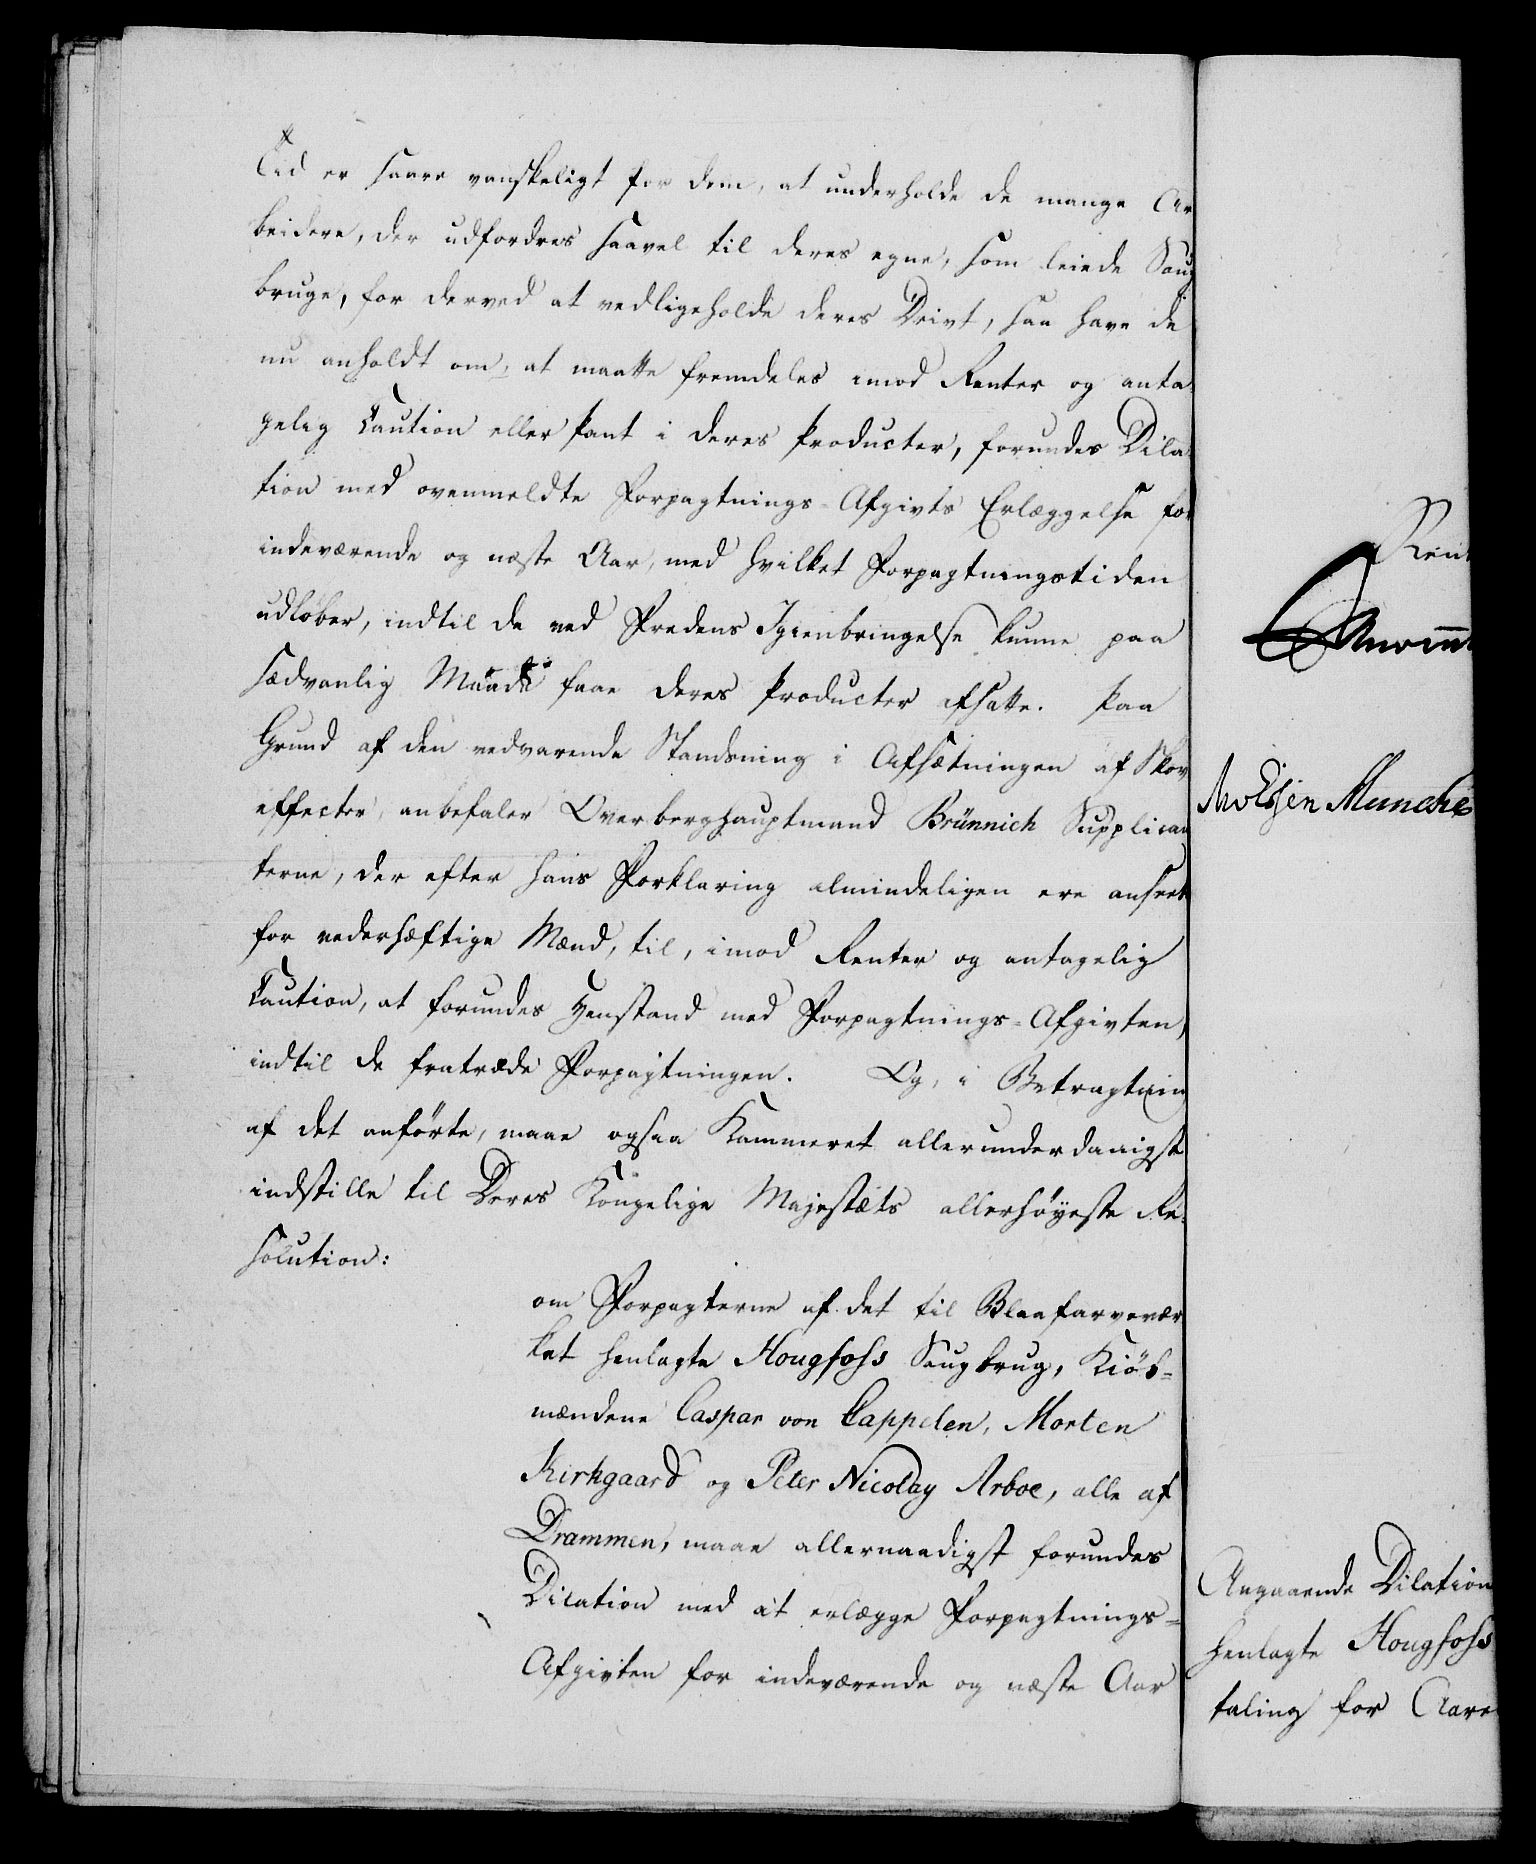 Tid er saare vanskeligt for dem, at underholde de mange Ar
beidere, der udfordres saavel til deres egne, som leiede Saug
bruge, for derved at vedligeholde deres Drivt, saa have de
nu anholdt om, at maatte fremdeles imod Renter og anta-
gelig Caution eller Pant i deres Producter, forundes Dila
tion med ovenmeldte Forpagtnings-Afgivts Erlæggelse for
indeværende og næste Aar, med hvilket Forpagtningstiden
udløber, indtil de ved Fredens Igienbringelse kunne paa
sædvanlig Maade faae deres Producter afsatte. Paa
Grund af den vedvarende Standsning i Afsætningen af Skov
effecter, anbefaler Overberghauptmand Brünnich Supplican
terne, der efter hans Forklaring almindeligen ere anseete
for vederhæftige Mænd, til, imod Renter og antagelig
Caution, at forundes Henstand med Forpagtnings-Afgivten,
indtil de fratræde Forpagtningen. Og, i Betragtning
af det anførte, maae ogsaa Kammeret allerunderdanigst
indstille til Deres Kongelige Majestæts allerhøyeste Re-
solution:
om Forpagterne af det til Blaafarvevær
ket henlagte Hougfoss Saugbrug, Kiöb-
mændene Caspar von Cappelen, Morten
Kirkgaard og Peter Nicolay Arboe, alle af
Drammen, maae allernaadigst forundes
Dilation med at erlægge Forpagtnings-
Afgivten for indeværende og næste Aar
Rent
Munche
Angaaende Dilation
henlagte Hougfoss
taling for Aare